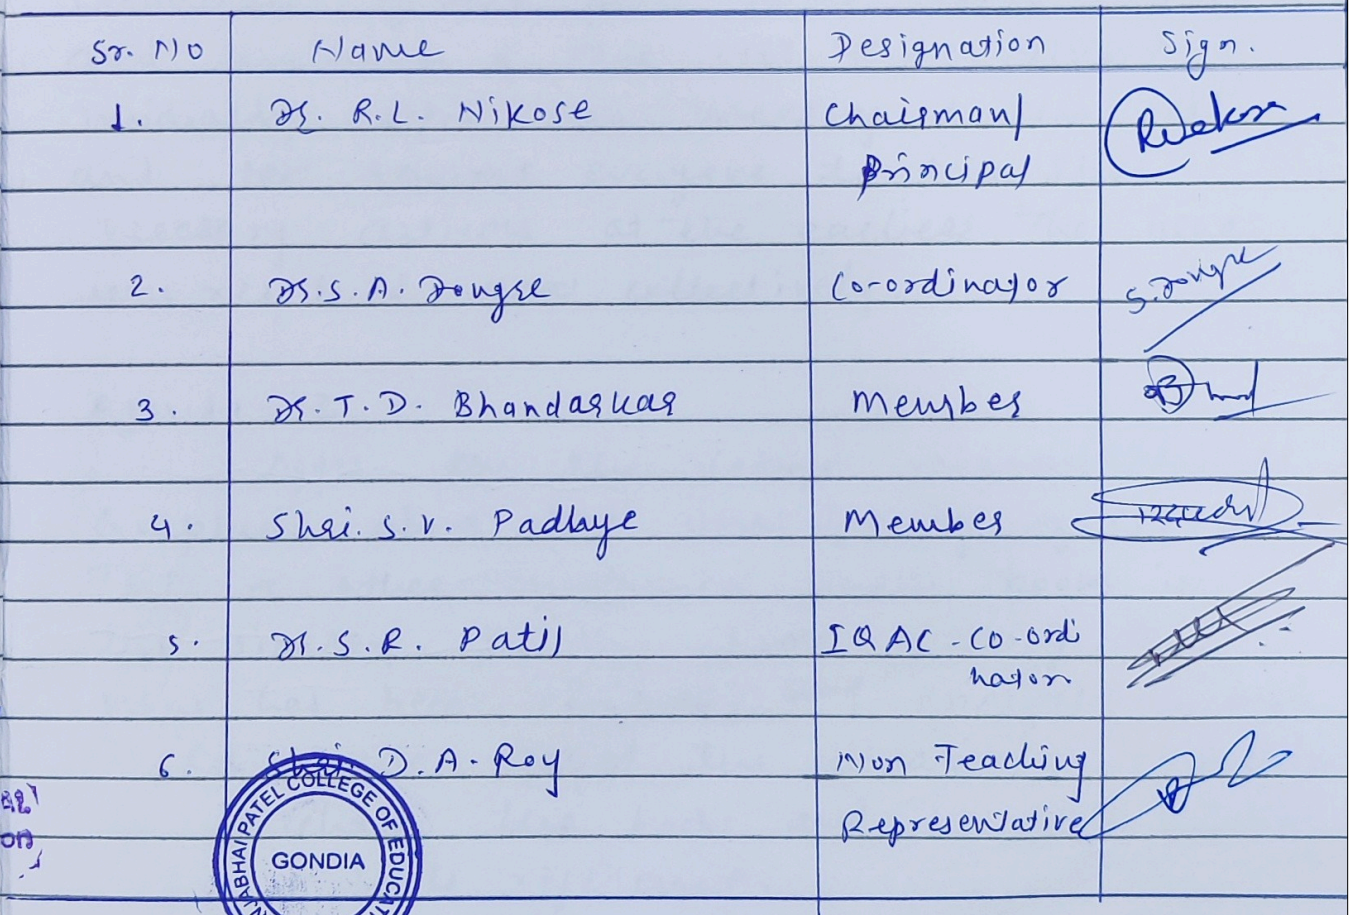 Sr. No Name Designation Sign.
1. Dr. R.L. Nikose Chairman/
Principal
2. Dr. S. A. Dongre Co-ordinator S. Dongre
3. Dr. T. D. Bhandarkar Member
4. Shri. S. V. Padhye Member
5. Dr. S. R. Patil IQAC - Co-ordi
nator
6. Shri. D. A. Roy Non Teaching
Representative
PATEL COLLEGE OF
GONDIA